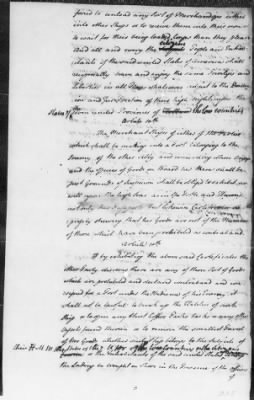 forced to unload any Sort of Merchandizes either
into other Ships or to receive them into their own
to wait for their being loaded longer than they please
And all and every the Subjects People and Inhabi-
tants of the said united States of America shall
reciprocally have and enjoy the same Privileges and
Liberties in all Places whatsoever subject to the Domin-
ion and Jurisdiction of their high Mightinesses the
States of the seven united Provinces of the Low Countries
Article 10th
The Merchant Ships of either of the Parties
which shall be making into a Port belonging to the
Enemy of the other Ally and concerning whose Voyage
and the Species of Goods on Board her there shall be
just Grounds of Suspicion shall be obliged to exhibit as
well upon the high Seas as in the Ports and Havens
not only her Passports but likewise Certificates ex-
pressly shewing that her Goods are not of the Number
of those which have been prohibited as contraband
Article 11th
If by exhibiting the above said Certificates the
other Party discover there are any of those Sort of Goods
which are prohibited and declared contraband and con-
signed for a Port under the Obedience of his Enemy it
shall not be lawful to break up the Hatches of such
Ship or to open any Chest Coffers Packs Casks or any other
Vessels found therein or to remove the smallest Parcel
of her Goods whether such Ship belongs to the Subjects of
their H. M. the
or the Inhabitants of the said united States
the Lading be brought on Shore in the Presence of the officers
of